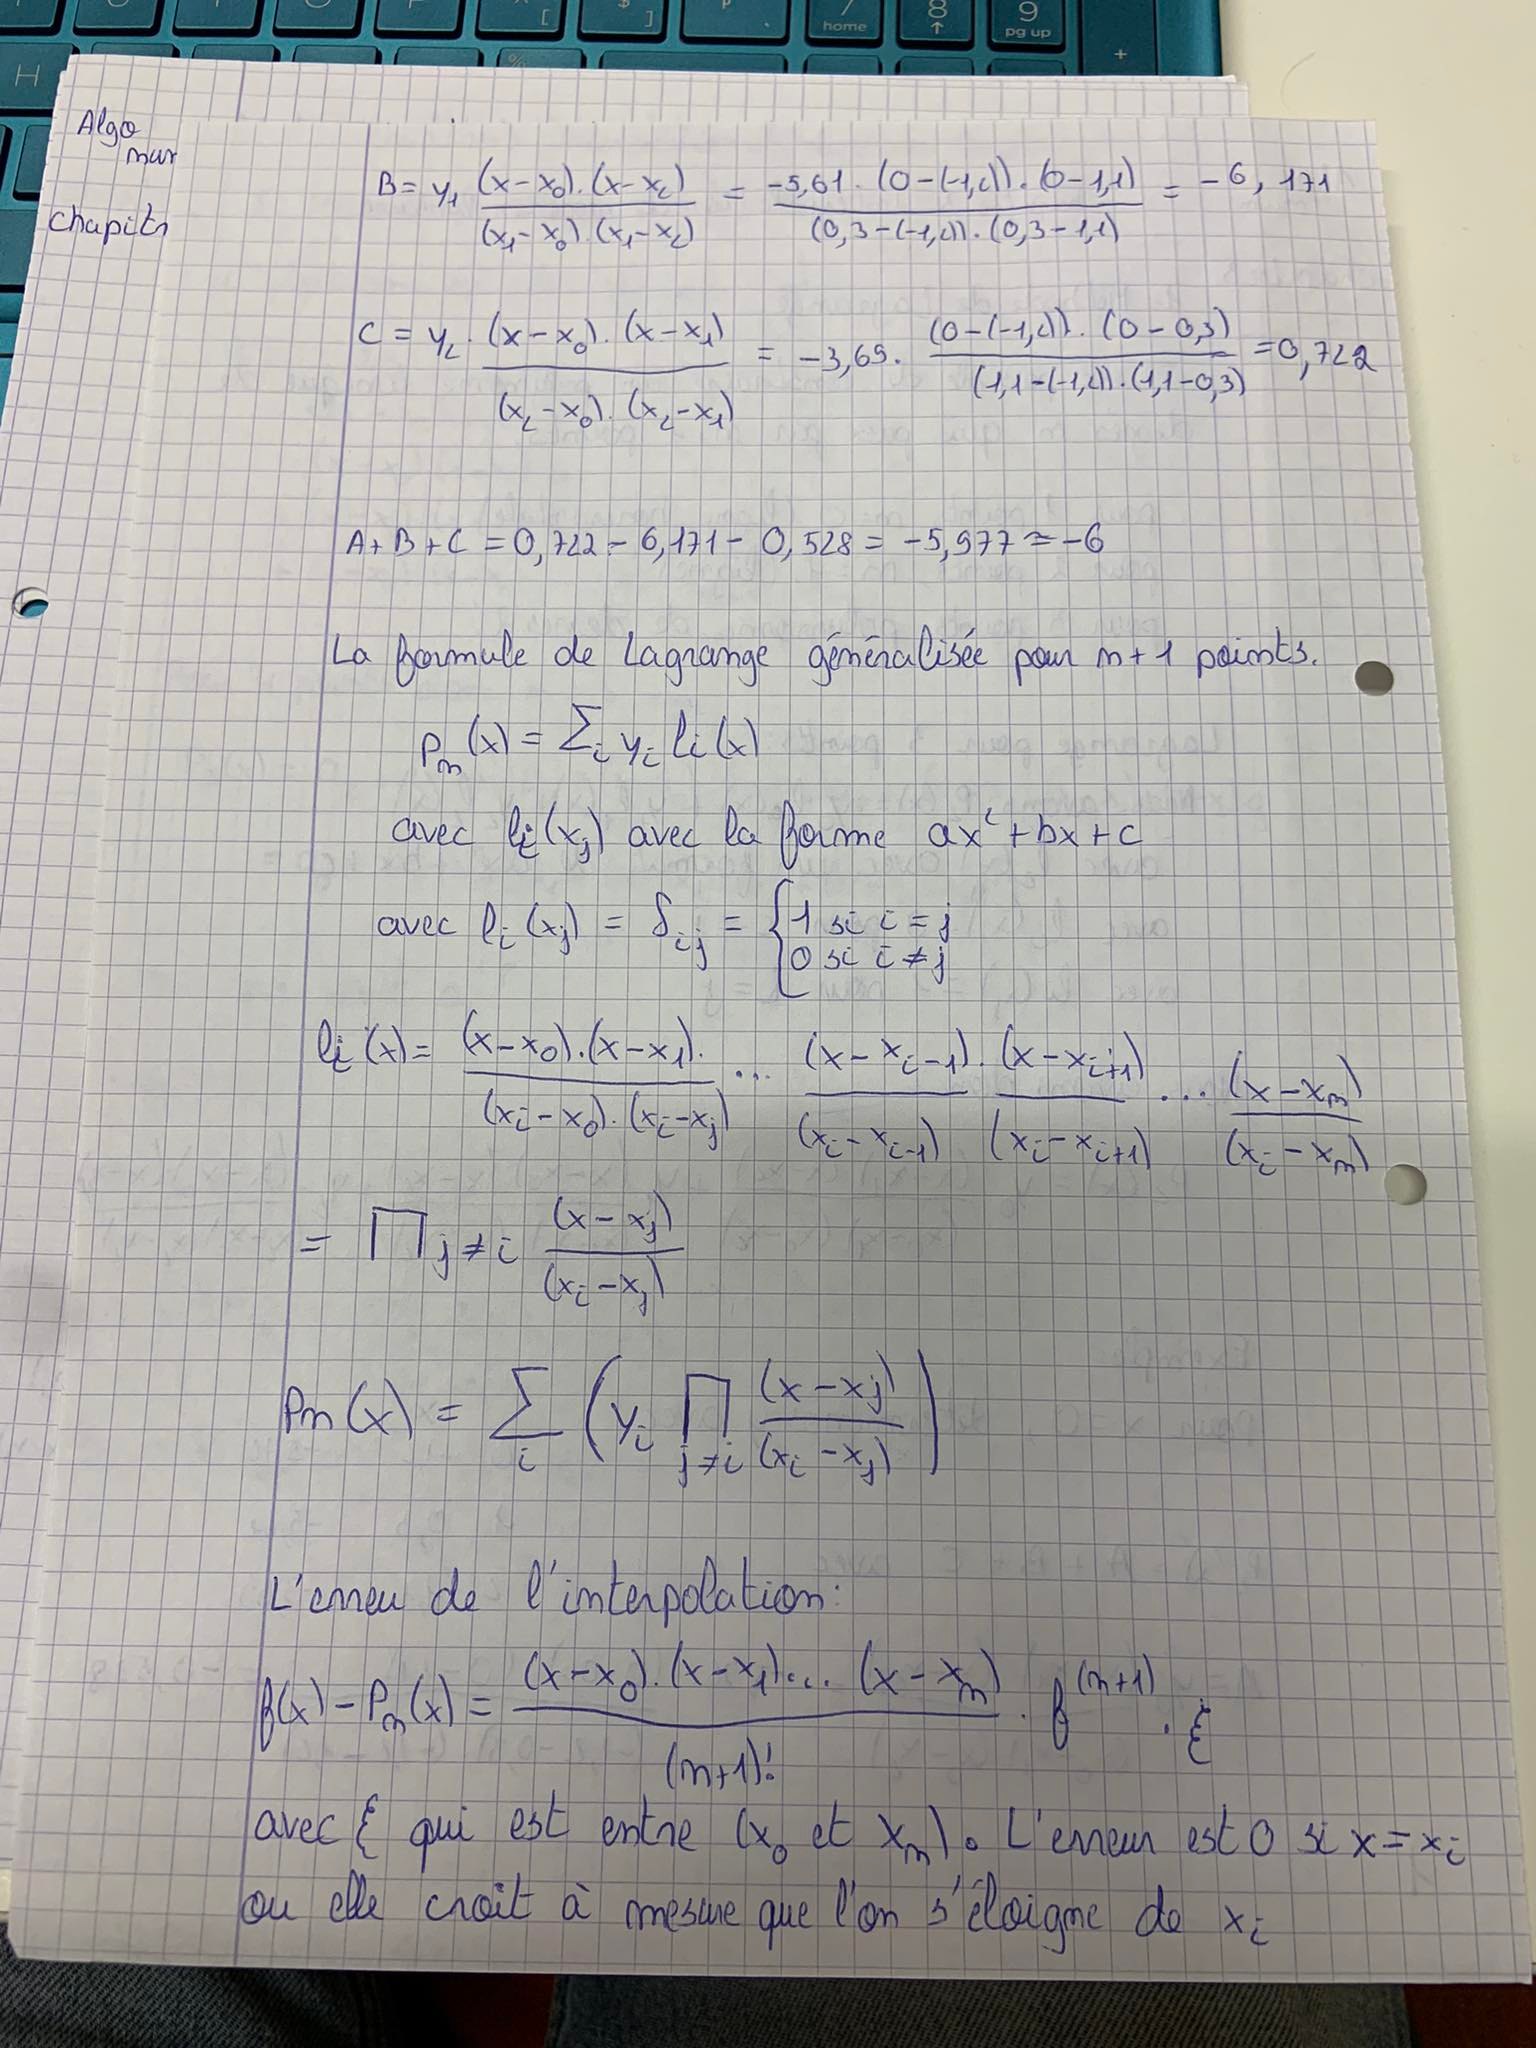 7 home
8 ↑
9 pg up
+
H
Algo
num
chapitr
B = y₁ (x-x₀).(x-x₂) / (x₁-x₀).(x₁-x₂) = -5,61.(0-(-1,2)).(0-1,1) / (0,3-(-1,2)).(0,3-1,1) = -6,171
C = y₂. (x-x₀).(x-x₁) / (x₂-x₀).(x₂-x₁) = -3,69. (0-(-1,2)).(0-0,3) / (1,1-(-1,2)).(1,1-0,3) = 0,722
A+B+C = 0,722 - 6,171 - 0,528 = -5,977 ≈ -6
La formule de Lagrange généralisée pour n+1 points.
Pₙ(x) = Σᵢ yᵢ lᵢ(x)
avec lᵢ(xⱼ) avec la forme ax²+bx+c
avec lᵢ(xⱼ) = δᵢⱼ = { 1 si i = j
0 si i ≠ j
lᵢ(x) = (x-x₀).(x-x₁). / (xᵢ-x₀).(xᵢ-xⱼ) ... (x-xᵢ₋₁) / (xᵢ-xᵢ₋₁) . (x-xᵢ₊₁) / (xᵢ-xᵢ₊₁) ... (x-xₙ) / (xᵢ-xₙ)
= ∏ j≠i (x-xⱼ) / (xᵢ-xⱼ)
Pn(x) = Σ i ( yᵢ ∏ j≠i (x-xⱼ) / (xᵢ-xⱼ) )
L'erreu de l'interpolation:
f(x) - Pₙ(x) = (x-x₀).(x-x₁)... (x-xₙ) / (n+1)! . f⁽ⁿ⁺¹⁾ . ξ
avec ξ qui est entre (x₀ et xₙ). L'erreur est 0 si x = xᵢ
ou elle croît à mesure que l'on s'éloigne de xᵢ